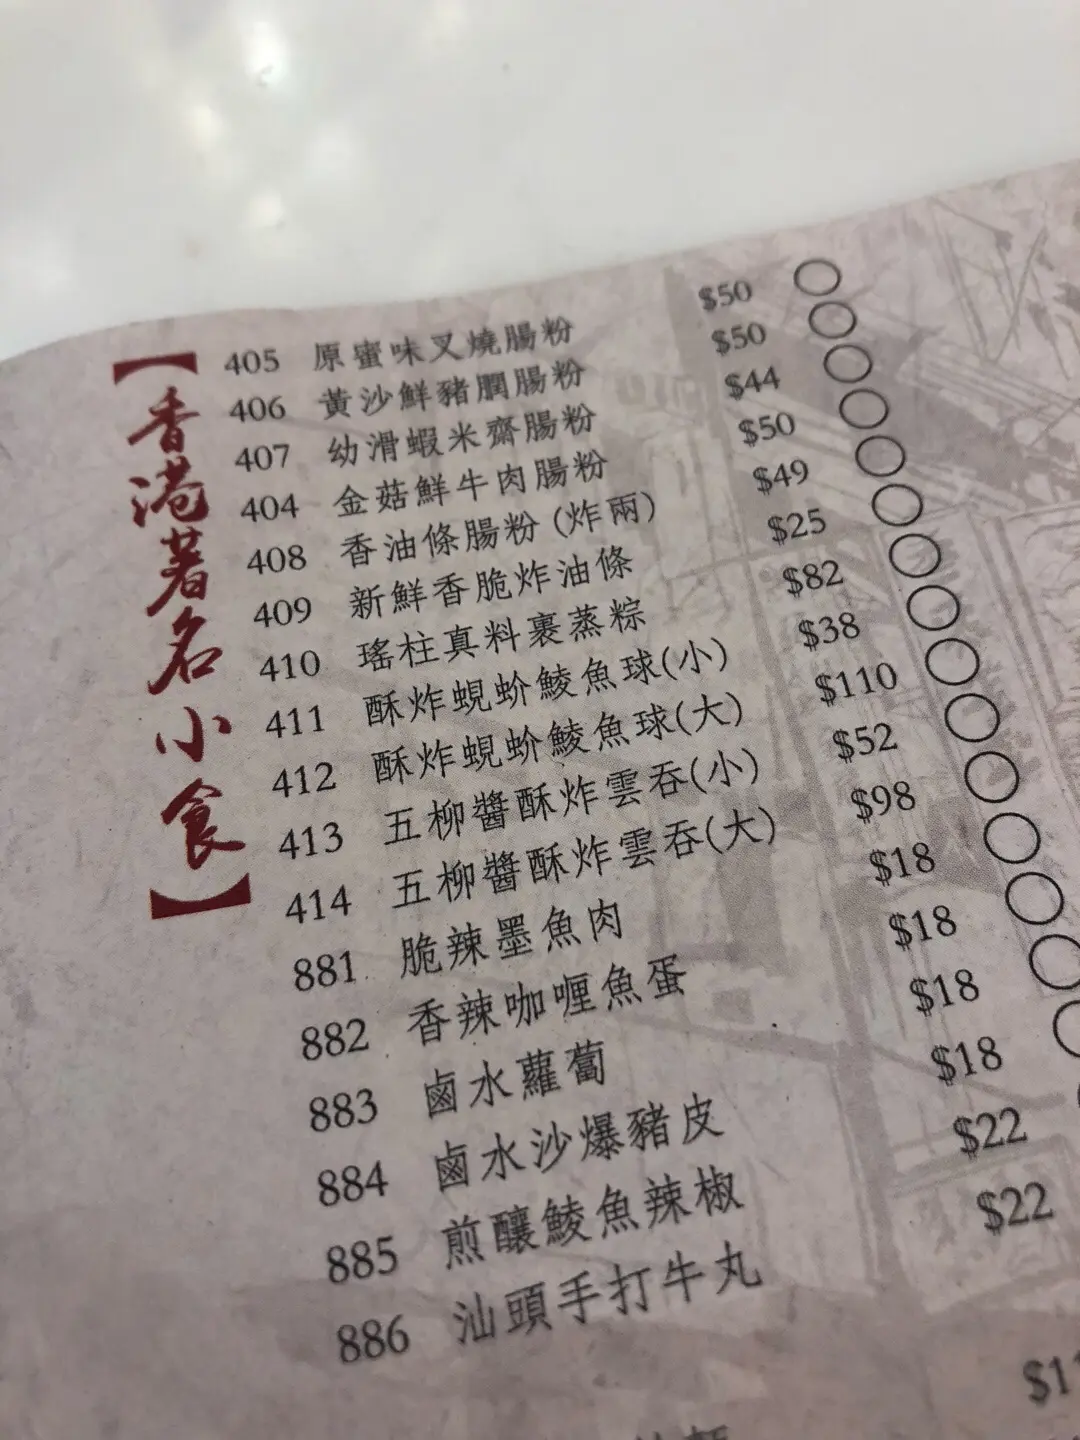 【香港著名小食】
405 原蜜味叉燒腸粉 $50
406 黃沙鮮豬膶腸粉 $50
407 幼滑蝦米齋腸粉 $44
404 金菇鮮牛肉腸粉 $50
408 香油條腸粉 (炸兩) $49
409 新鮮香脆炸油條 $25
410 瑤柱真料裹蒸粽 $82
411 酥炸蜆蚧鯪魚球(小) $38
412 酥炸蜆蚧鯪魚球(大) $110
413 五柳醬酥炸雲吞(小) $52
414 五柳醬酥炸雲吞(大) $98
881 脆辣墨魚肉 $18
882 香辣咖喱魚蛋 $18
883 鹵水蘿蔔 $18
884 鹵水沙爆豬皮 $18
885 煎釀鯪魚辣椒 $22
886 汕頭手打牛丸 $22